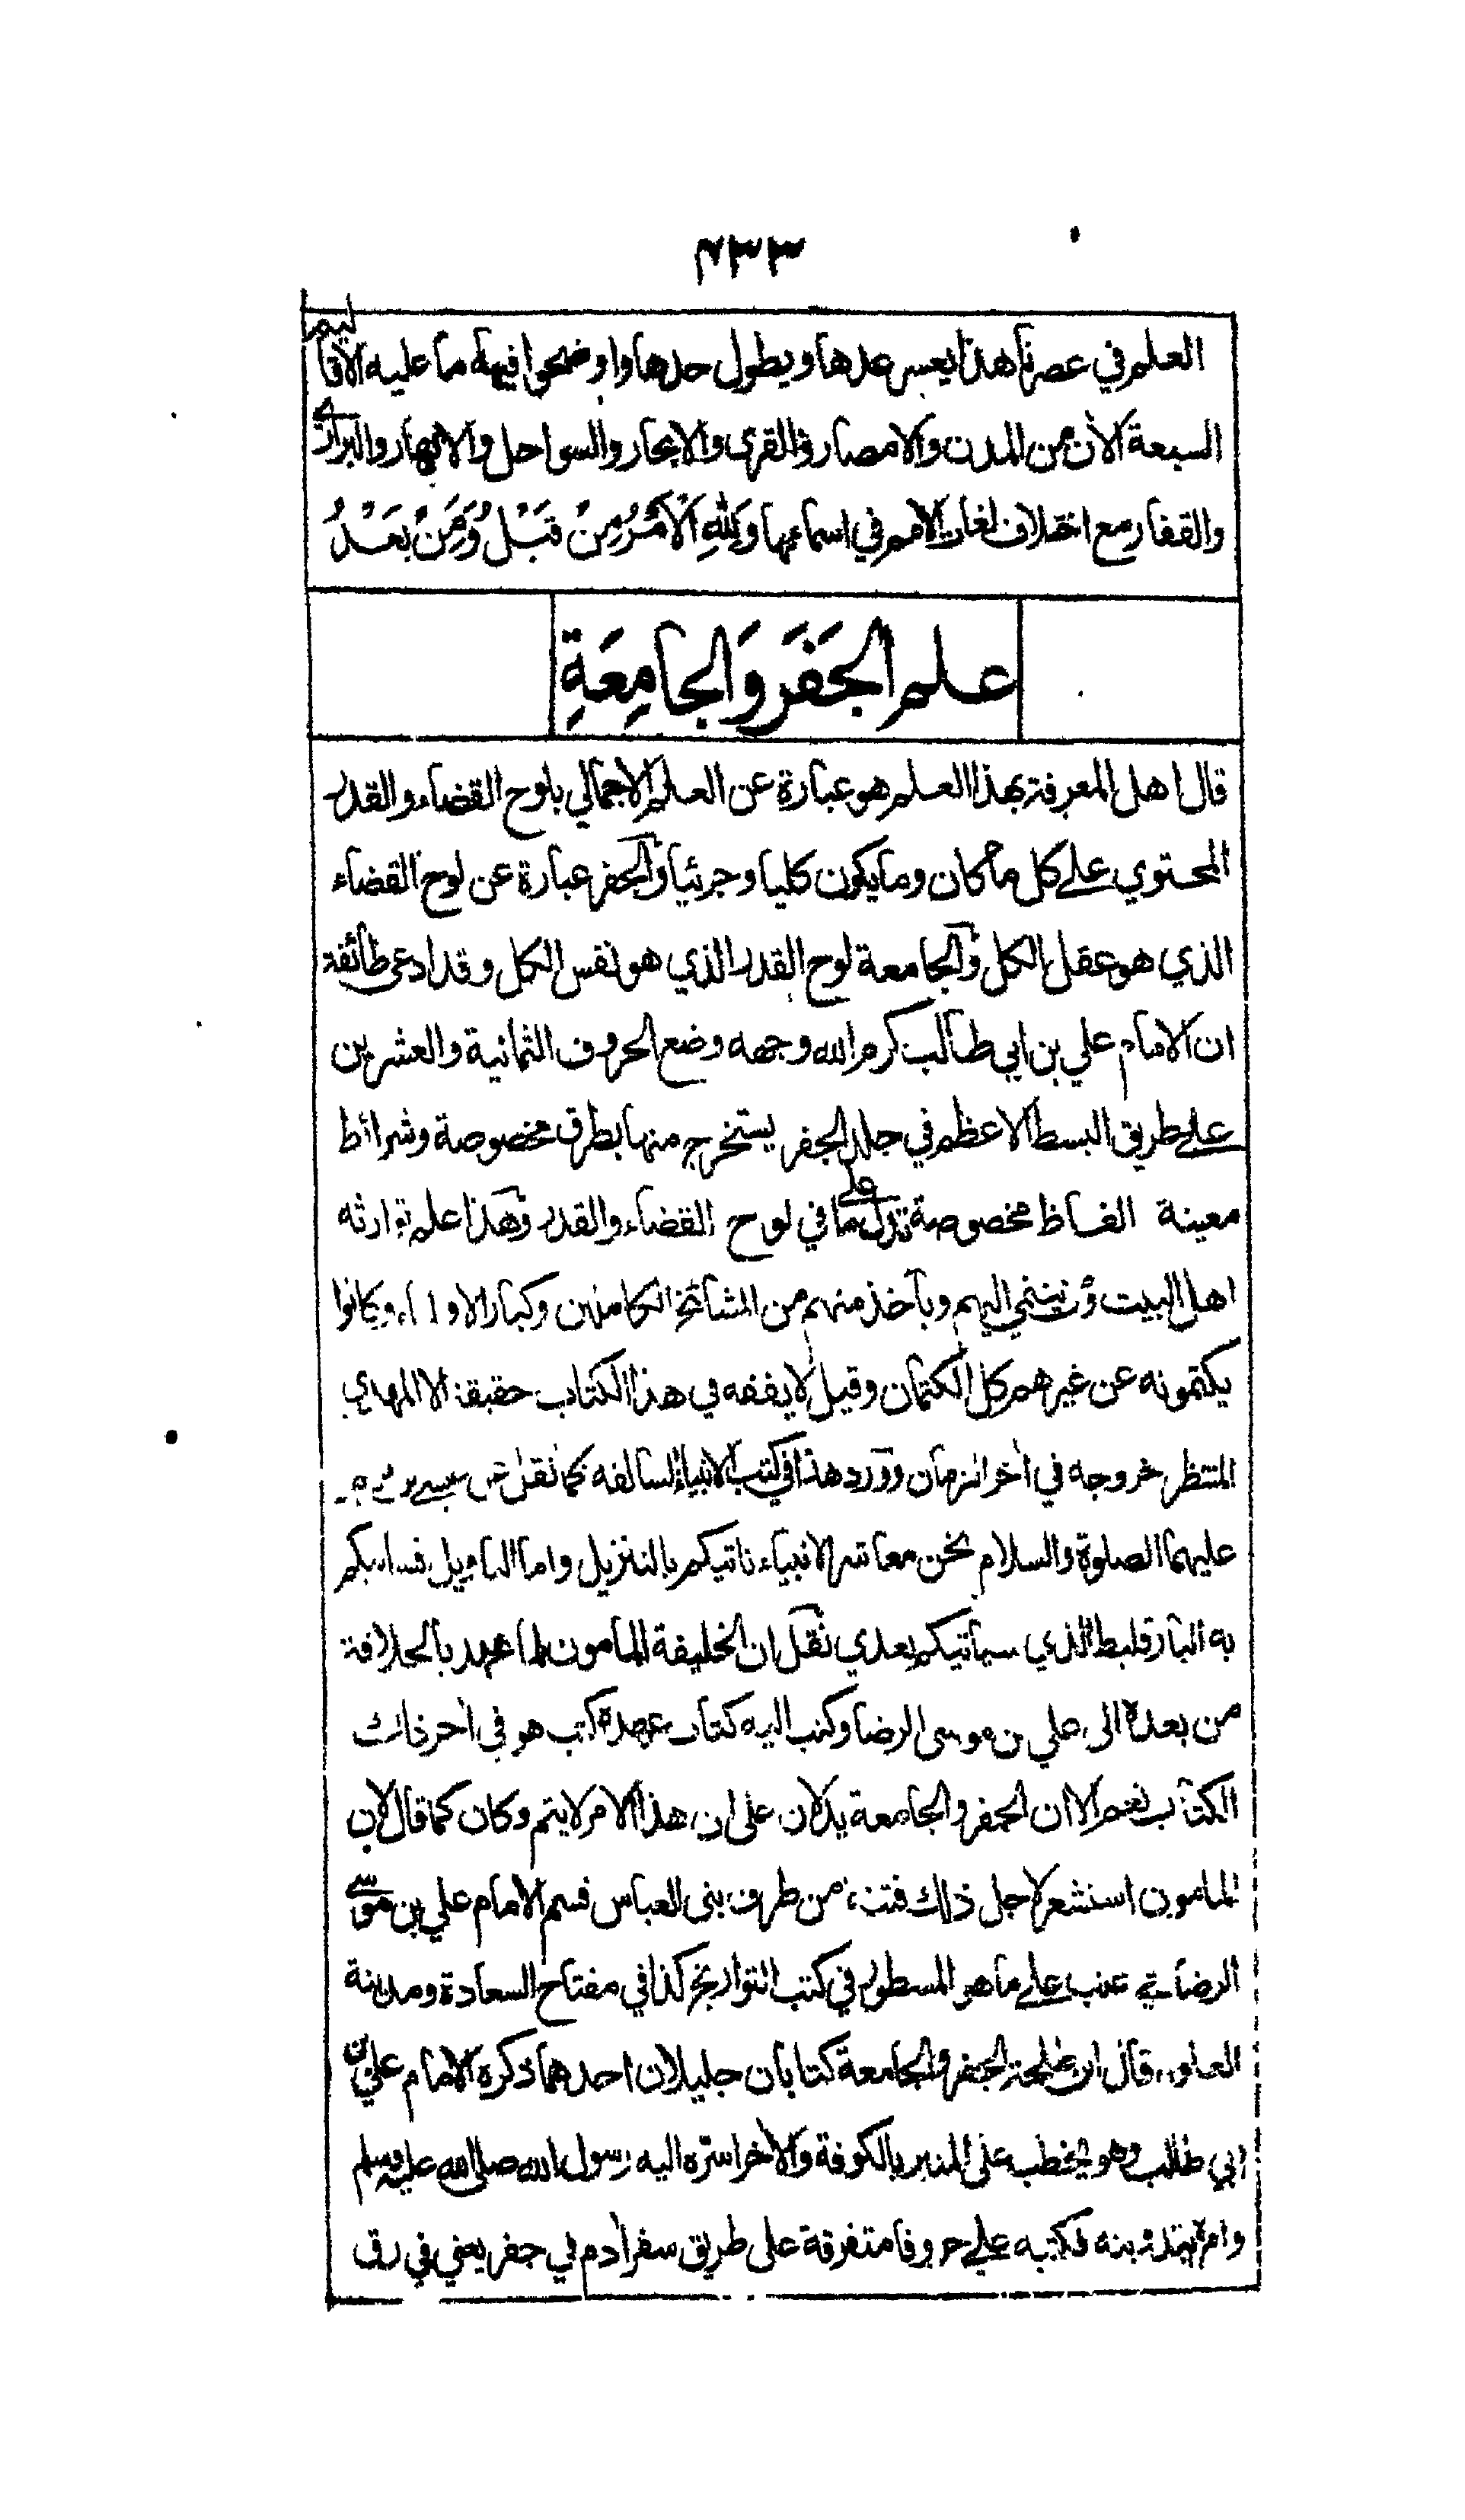 ٤٣٣
العلم في عصرنا هذا يعسر عدها ويطول حدها واوضحوا فيها ما عليه الاقاليم
السبعة الآن من المدن والامصار والقرى والابحار والسواحل والانهار والبراري
والقفار مع اختلاف لغات الامم في اسمائها وَلِلّٰهِ الْاَمْرُ مِنْ قَبْلُ وَمِنْ بَعْدُ
علم الجَفَر وَالجامِعَةِ
قال اهل المعرفة بهذا العلم هو عبارة عن العلم الاجمالي بلوح القضاء والقدر
المحتوي على كل ما كان وما يكون كليا وجزئيا والجفر عبارة عن لوح القضاء
الذي هو عقل الكل والجامعة لوح القدر الذي هو نفس الكل وقد ادعى طائفة
ان الامام علي بن ابي طالب كرم الله وجهه وضع الحروف الثمانية والعشرين
على طريق البسط الاعظم في جلد الجفر يستخرج منها بطرق مخصوصة وشرائط
معينة الفاظ مخصوصة تدل على ما في لوح القضاء والقدر وهذا علم توارثه
اهل البيت ومن ينتمي اليهم ويأخذ منهم من المشائخ الكاملين وكانوا
يكتمونه عن غيرهم كل الكتمان وقيل لا يفقه في هذا الكتاب حقيقة الا المهدي
المنتظر خروجه في آخر الزمان وورد هذا في كتب الانبياء السالفة كما نقل عن عيسى بن مريم
عليهما الصلوة والسلام نحن معاشر الانبياء ناتيكم بالتنزيل واما التاويل فسياتيكم
به البارقليط الذي سياتيكم بعدي نقل ان الخليفة المامون لما عهد بالخلافة
من بعده الى علي بن موسى الرضا وكتب اليه كتاب عهده كتب هو في آخر ذلك
الكتاب نعم الا ان الجفر والجامعة يدلان على ان هذا الامر لا يتم وكان كما قال لان
المامون استشعر لاجل ذلك فتنة من طرف بنى العباس فسم الامام علي بن موسى
الرضا في عنب على ما هو المسطور في كتب التواريخ كذا في مفتاح السعادة ومدينة
العلوم قال ابن طلحة الجفر والجامعة كتابان جليلان احدهما ذكره الامام علي بن
ابي طالب وهو يخطب على المنبر بالكوفة والآخر اسره اليه رسول الله صلى الله عليه وسلم
وامره بتدوينه فكتبه على حروفا متفرقة على طريق سفر آدم في جفر يعني في رق